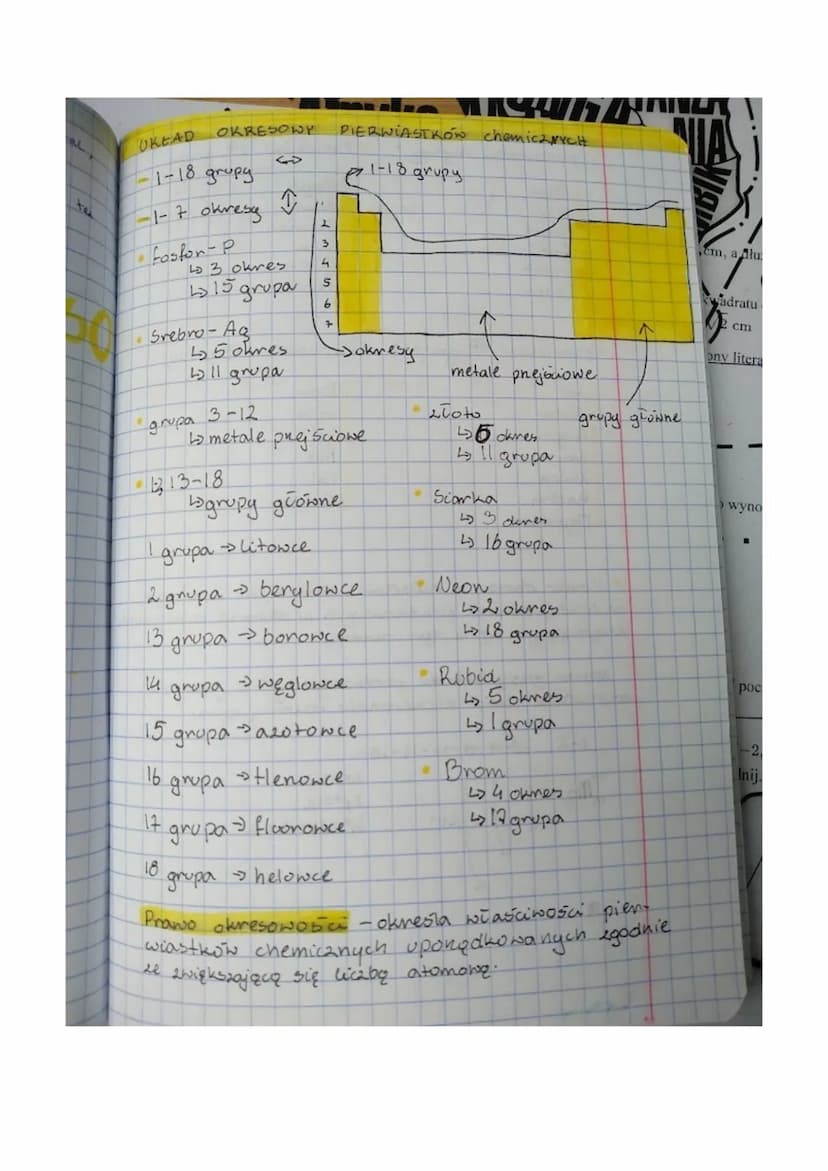 UKŁAD OKRESOWY PIERWIASTKÓW chemicznYCH
- 1-18 grupy ↔
- 1-7 okresy ↕
1-18 grupy
1
2
3
4
5
6
7
→ okresy
metale przejściowe
grupy główne
• fosfor - P
↳ 3 okres
↳ 15 grupa
• Srebro - Ag
↳ 5 okres
↳ 11 grupa
• grupa 3-12
↳ metale przejściowe
• 1,2, 13-18
↳ grupy główne
1 grupa → litowce
2 grupa → berylowce
13 grupa → borowce
14 grupa → węglowce
15 grupa → azotowce
16 grupa → tlenowce
17 grupa → fluorowce
18 grupa → helowce
• złoto
↳ 6 okres
↳ 11 grupa
• Siarka
↳ 3 okres
↳ 16 grupa
• Neon
↳ 2 okres
↳ 18 grupa
• Rubid
↳ 5 okres
↳ 1 grupa
• Brom
↳ 4 okres
↳ 17 grupa
Prawo okresowości - określa właściwości pier-
wiastków chemicznych uporządkowanych zgodnie
ze zwiększającą się liczbą atomową.
60
cm, a dłu
wadratu
2 cm
ony litera
wyno
poc
-2,
lnij.